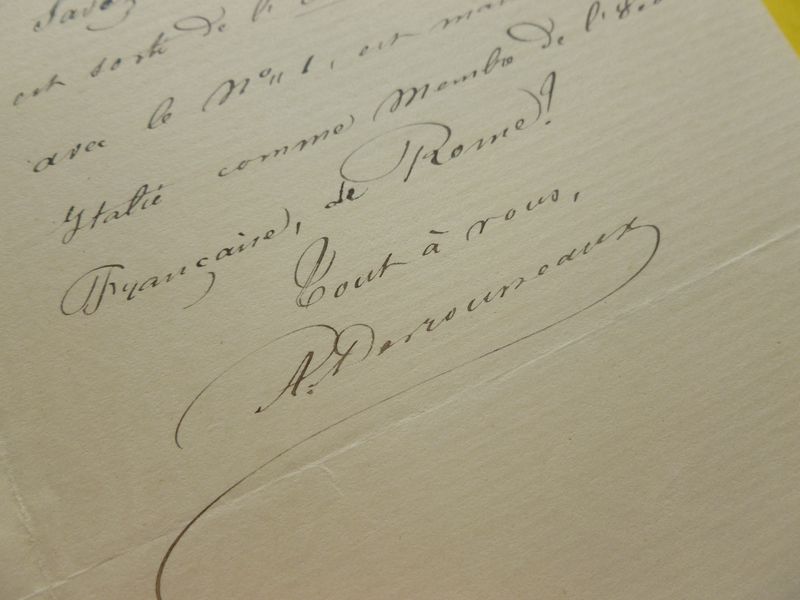 est sorti de l'
avec le N° 1, est
Italie comme Membre de l'
Française, de Rome!
Tout à vous,
A. Desrousseaux